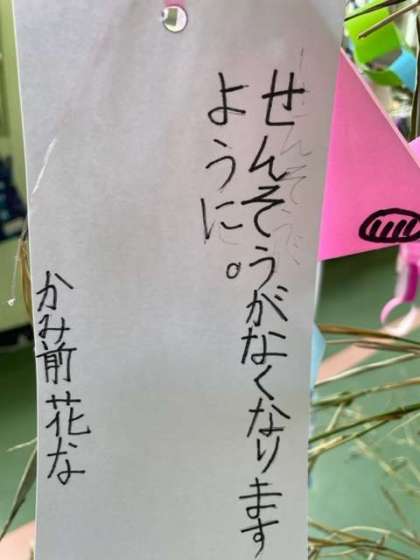 せんそうがなくなります
ように。
かみ前花な